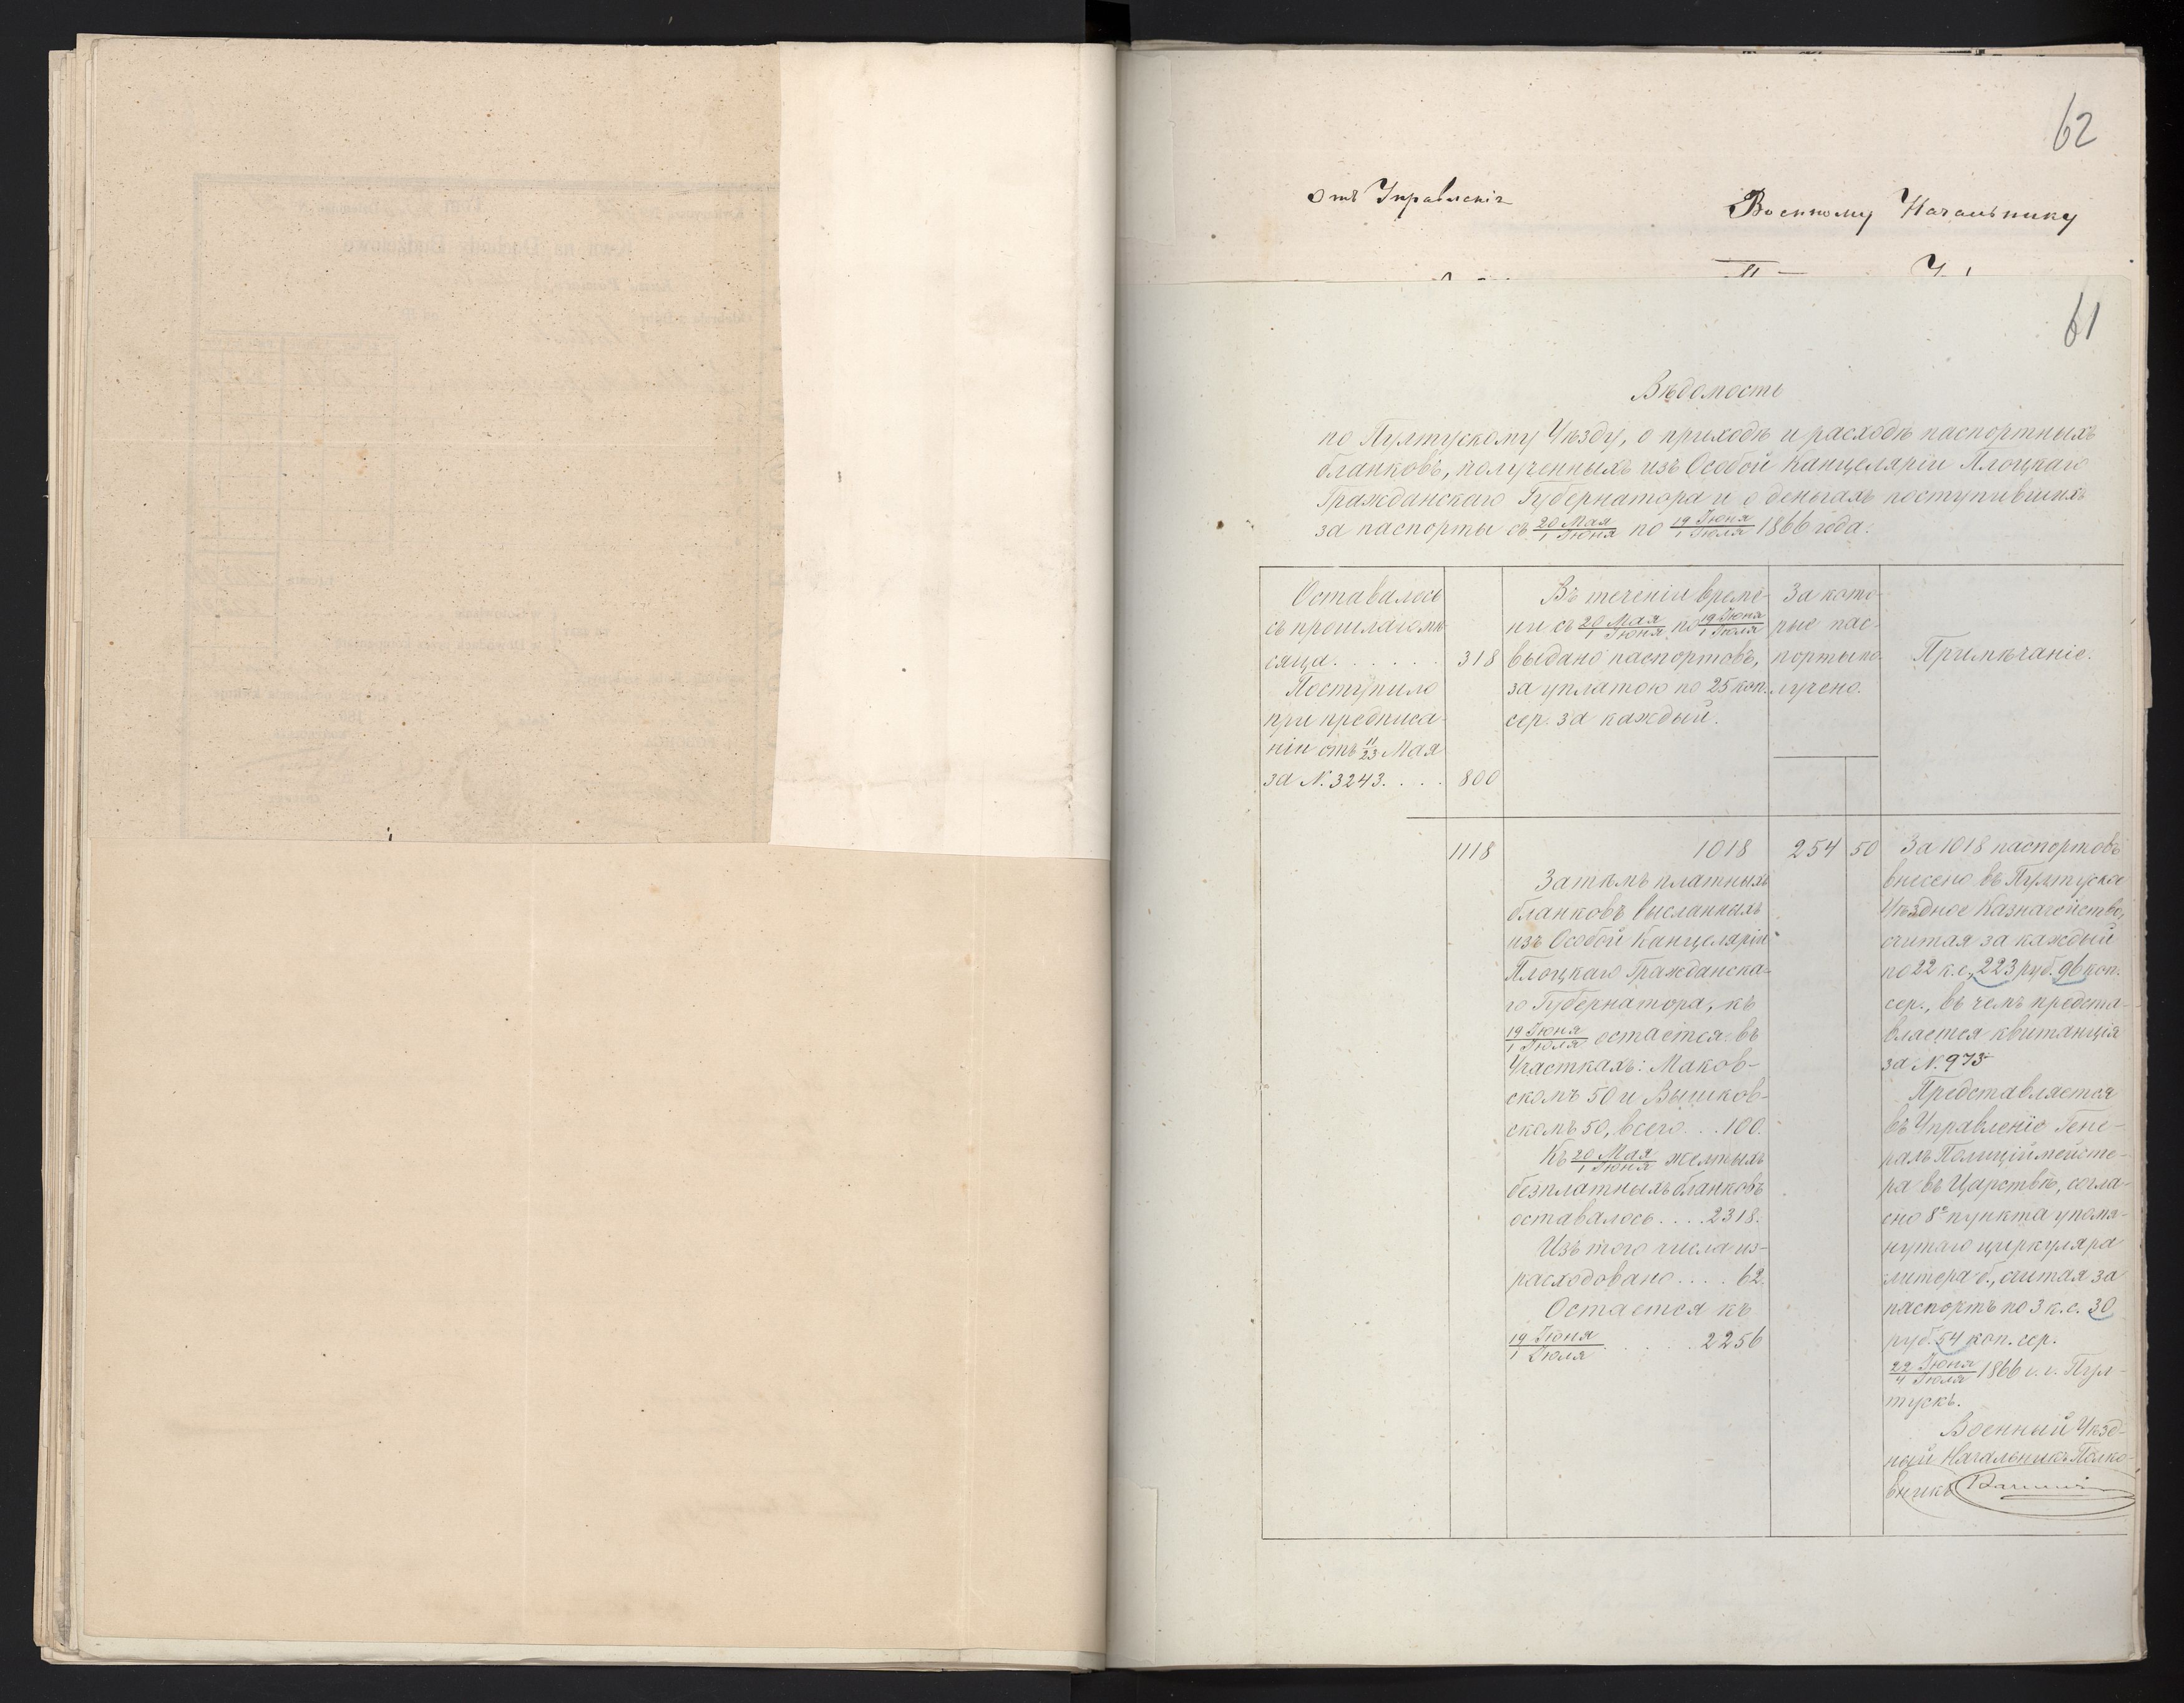 62
Отъ Управленія
Военному Начальнику
61
Вѣдомость
по Пултускому Уѣзду, о приходѣ и расходѣ паспортныхъ
бланковъ, полученныхъ изъ Особой Канцеляріи Плоцкаго
Гражданскаго Губернатора и о деньгахъ поступившихъ
за паспорты съ 20 Мая/1 Іюня по 19 Іюня/1 Іюля 1866 года.
Оставалось
съ прошлаго мѣ
сяца. . . . . . 318
Поступило
при предписа-
ніи отъ 11/23 Мая
за N. 3243. . . . 800
1118
Въ теченіи време-
ни съ 20 Мая/1 Іюня по 19 Іюня/1 Іюля
выдано паспортовъ,
за уплатою по 25 коп.
сер. за каждый.
1018
Затѣмъ платныхъ
бланковъ высланныхъ
изъ Особой Канцеляріи
Плоцкаго Гражданска-
го Губернатора, къ
19 Іюня/1 Іюля остается въ
Участкахъ: Маков-
скомъ 50 и Вышков-
скомъ 50, всего . . . 100.
Къ 20 Мая/1 Іюня желтыхъ
безплатныхъ бланковъ
оставалось . . . . 2318.
Изъ того числа из-
расходовано . . . . 62.
Остается къ
19 Іюня/1 Іюля . . . . . . 2256
За кото-
рые пас-
порты по-
лучено.
254 50
Примѣчаніе.
За 1018 паспортовъ
внесено въ Пултуское
Уѣздное Казначейство,
считая за каждый
по 22 к. с. 223 руб. 96 коп.
сер., въ чемъ предста-
вляется квитанція
за N. 975
Представляется
въ Управленіе Гене-
ралъ Полиціймейсте-
ра въ Царствѣ, согла-
сно 8го пункта упомя-
нутаго циркуляра
литера б., считая за
паспортъ по 3 к. с. 30
руб. 54 коп. сер.
22 Іюня/4 Іюля 1866 г. г. Пул-
тускъ.
Военный Уѣзд-
ный Начальникъ Полко-
вникъ